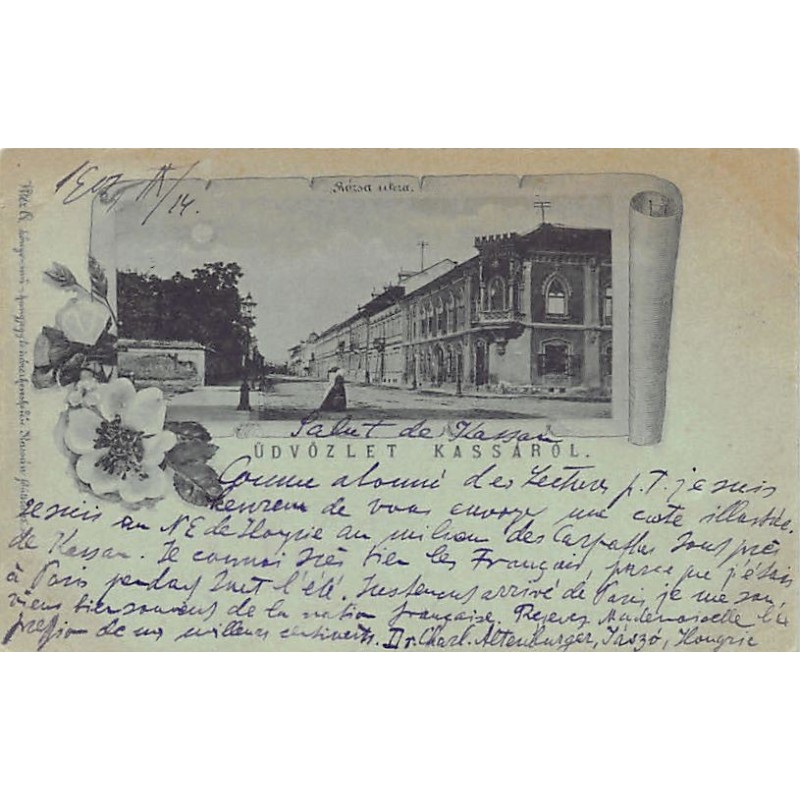 IX/14.
Rózsa utca.
Salut de Kassan
ÜDVÖZLET KASSÁRÓL.
Comme abonné des Lectures p. T. je suis
heureux de vous envoyer une carte illustrée.
Je suis au NE de Hongrie au milieu des Carpathes tous près
de Kassan. Je connai très bien les Français, parce que j'étais
à Paris pendant tout l'été. Justement arrivé de Paris je me sou-
viens bien souvent de la nation française. Recevez Mademoiselle l'ex
pression de mes meilleurs sentiments. Dr. Charl. Altenburger, Jászó, Hongrie